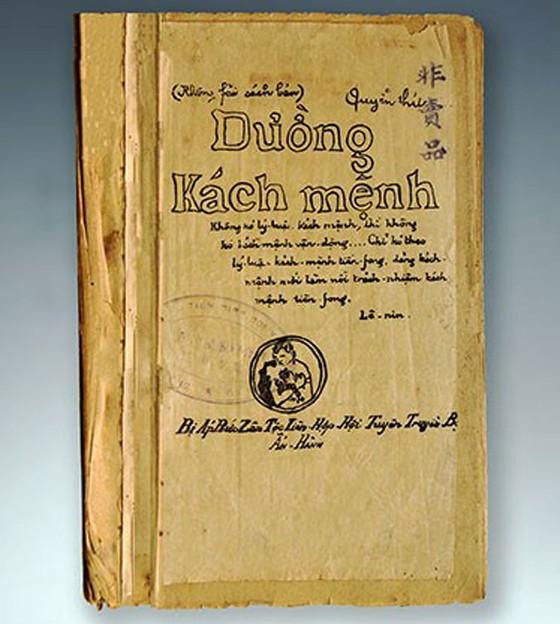 (Không fải sách bán) Quyển thứ
非賣品
Dường
Kách mệnh
Không kó lý-luận kách mệnh, thì không
kó kách mệnh vận-động.... Chỉ kó theo
lý-luận kách-mệnh tiền-fong, đảng kách-
mệnh mới làm nổi trách-nhiệm kách
mệnh tiền-fong.
Lê-nin.
Bị Áp Bức Zân Tộc Liên-Hợp Hội Tuyên Truyền Bộ
Ấn-Hành